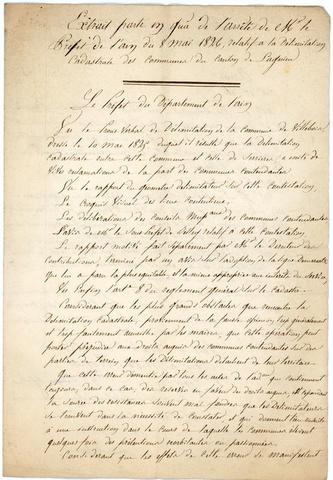 Extrait parte in quâ de l'arrêté de Mr le
Préfet de l'ain du 8 mai 1826, relatif a la Délimitation
Cadastrale des communes du canton de Lagnieu
Le Préfet du Département de l'ain
Vu le Procès Verbal de Délimitation de la commune de Villebois
dressé le 10 mai 1825 duquel il résulte que la délimitation
cadastrale entre cette commune et celle de Serrières a excité de
Vives réclamations de la part des communes contendantes
Vu le rapport du géomètre délimitateur sur cette contestation,
Le croquis Visuel des lieux Contentieux,
Les délibérations des conseils Mupaux des communes contendantes
L'avis de Mr le Sous préfet de Belley relatif a cette contestation
Le rapport motivé fait séparément par Mr le Directeur des
Contributions, terminé par un avis sur l'adoption de la ligne
qui lui a paru la plus équitable, et la mieux appropriée aux intérêts du service,
Vu l'art 8 du règlement général sur le cadastre
Considérant que les plus grands obstacles que rencontre la
Délimitation cadastrale, proviennent de la fausse opinion trop généralement
et trop facilement accueillie par les maires, que cette opération peut
porter préjudice aux droits acquis des communes contendantes sur des
parties de terrein que les délimitations détachent de leur territoire
que cette erreur démentie par tous les actes de l'adon qui contiennent
toujours, dans ce cas, des réserves en faveur des droits acquis, est cependant
la source des résistances souvent mal fondées que les Délimitateurs
se trouvent dans la nécessité de Constater et qui donnent lieu ensuite
a une instruction dans le cours de laquelle les communes élèvent
quelques fois des prétentions exorbitantes ou passionnées
Considérant que les effets de cette erreur se manifestent